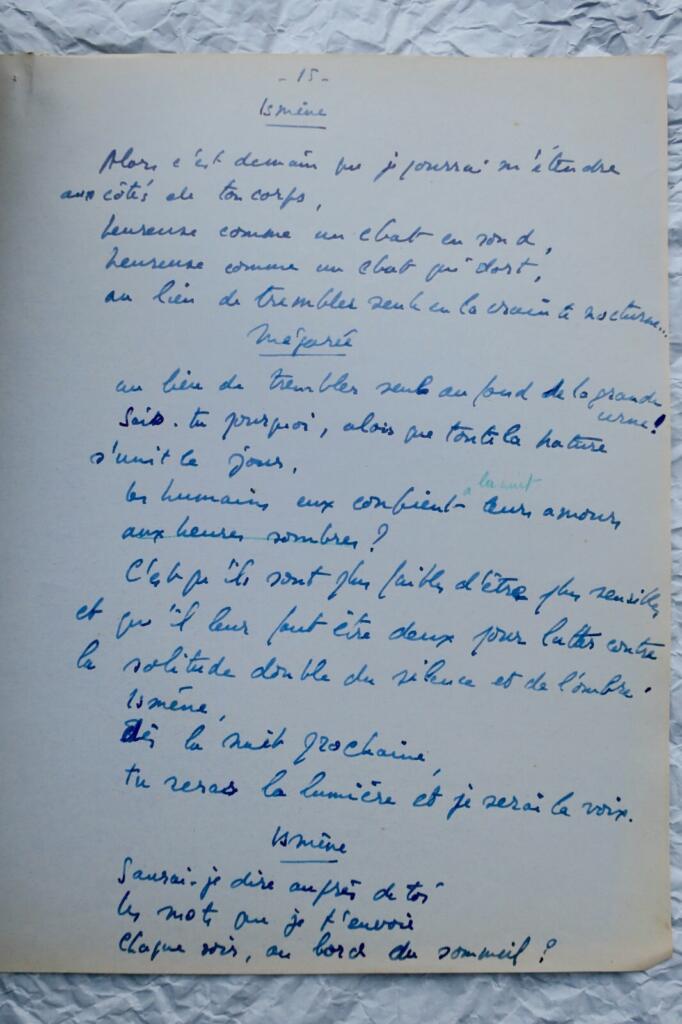 - 15 -
Ismène
Alors c'est demain que je pourrai m'étendre
aux côtés de ton corps,
heureuse comme un chat en rond,
heureuse comme un chat qui dort,
au lieu de trembler seule en la crainte nocturne...
Mégarée
au lieu de trembler seule au fond de la grande
urne!
Sais-tu pourquoi, alors que toute la nature
s'unit le jour,
la nuit
les humains eux confient leurs amours
aux heures sombres ?
C'est qu'ils sont plus faibles d'être plus sensibles
et qu'il leur faut être deux pour lutter contre
la solitude double du silence et de l'ombre.
Ismène,
Dès la nuit prochaine,
tu seras la lumière et je serai la voix.
Ismène
Saurai-je dire auprès de toi
les mots que je t'envoie
chaque soir, au bord du sommeil ?